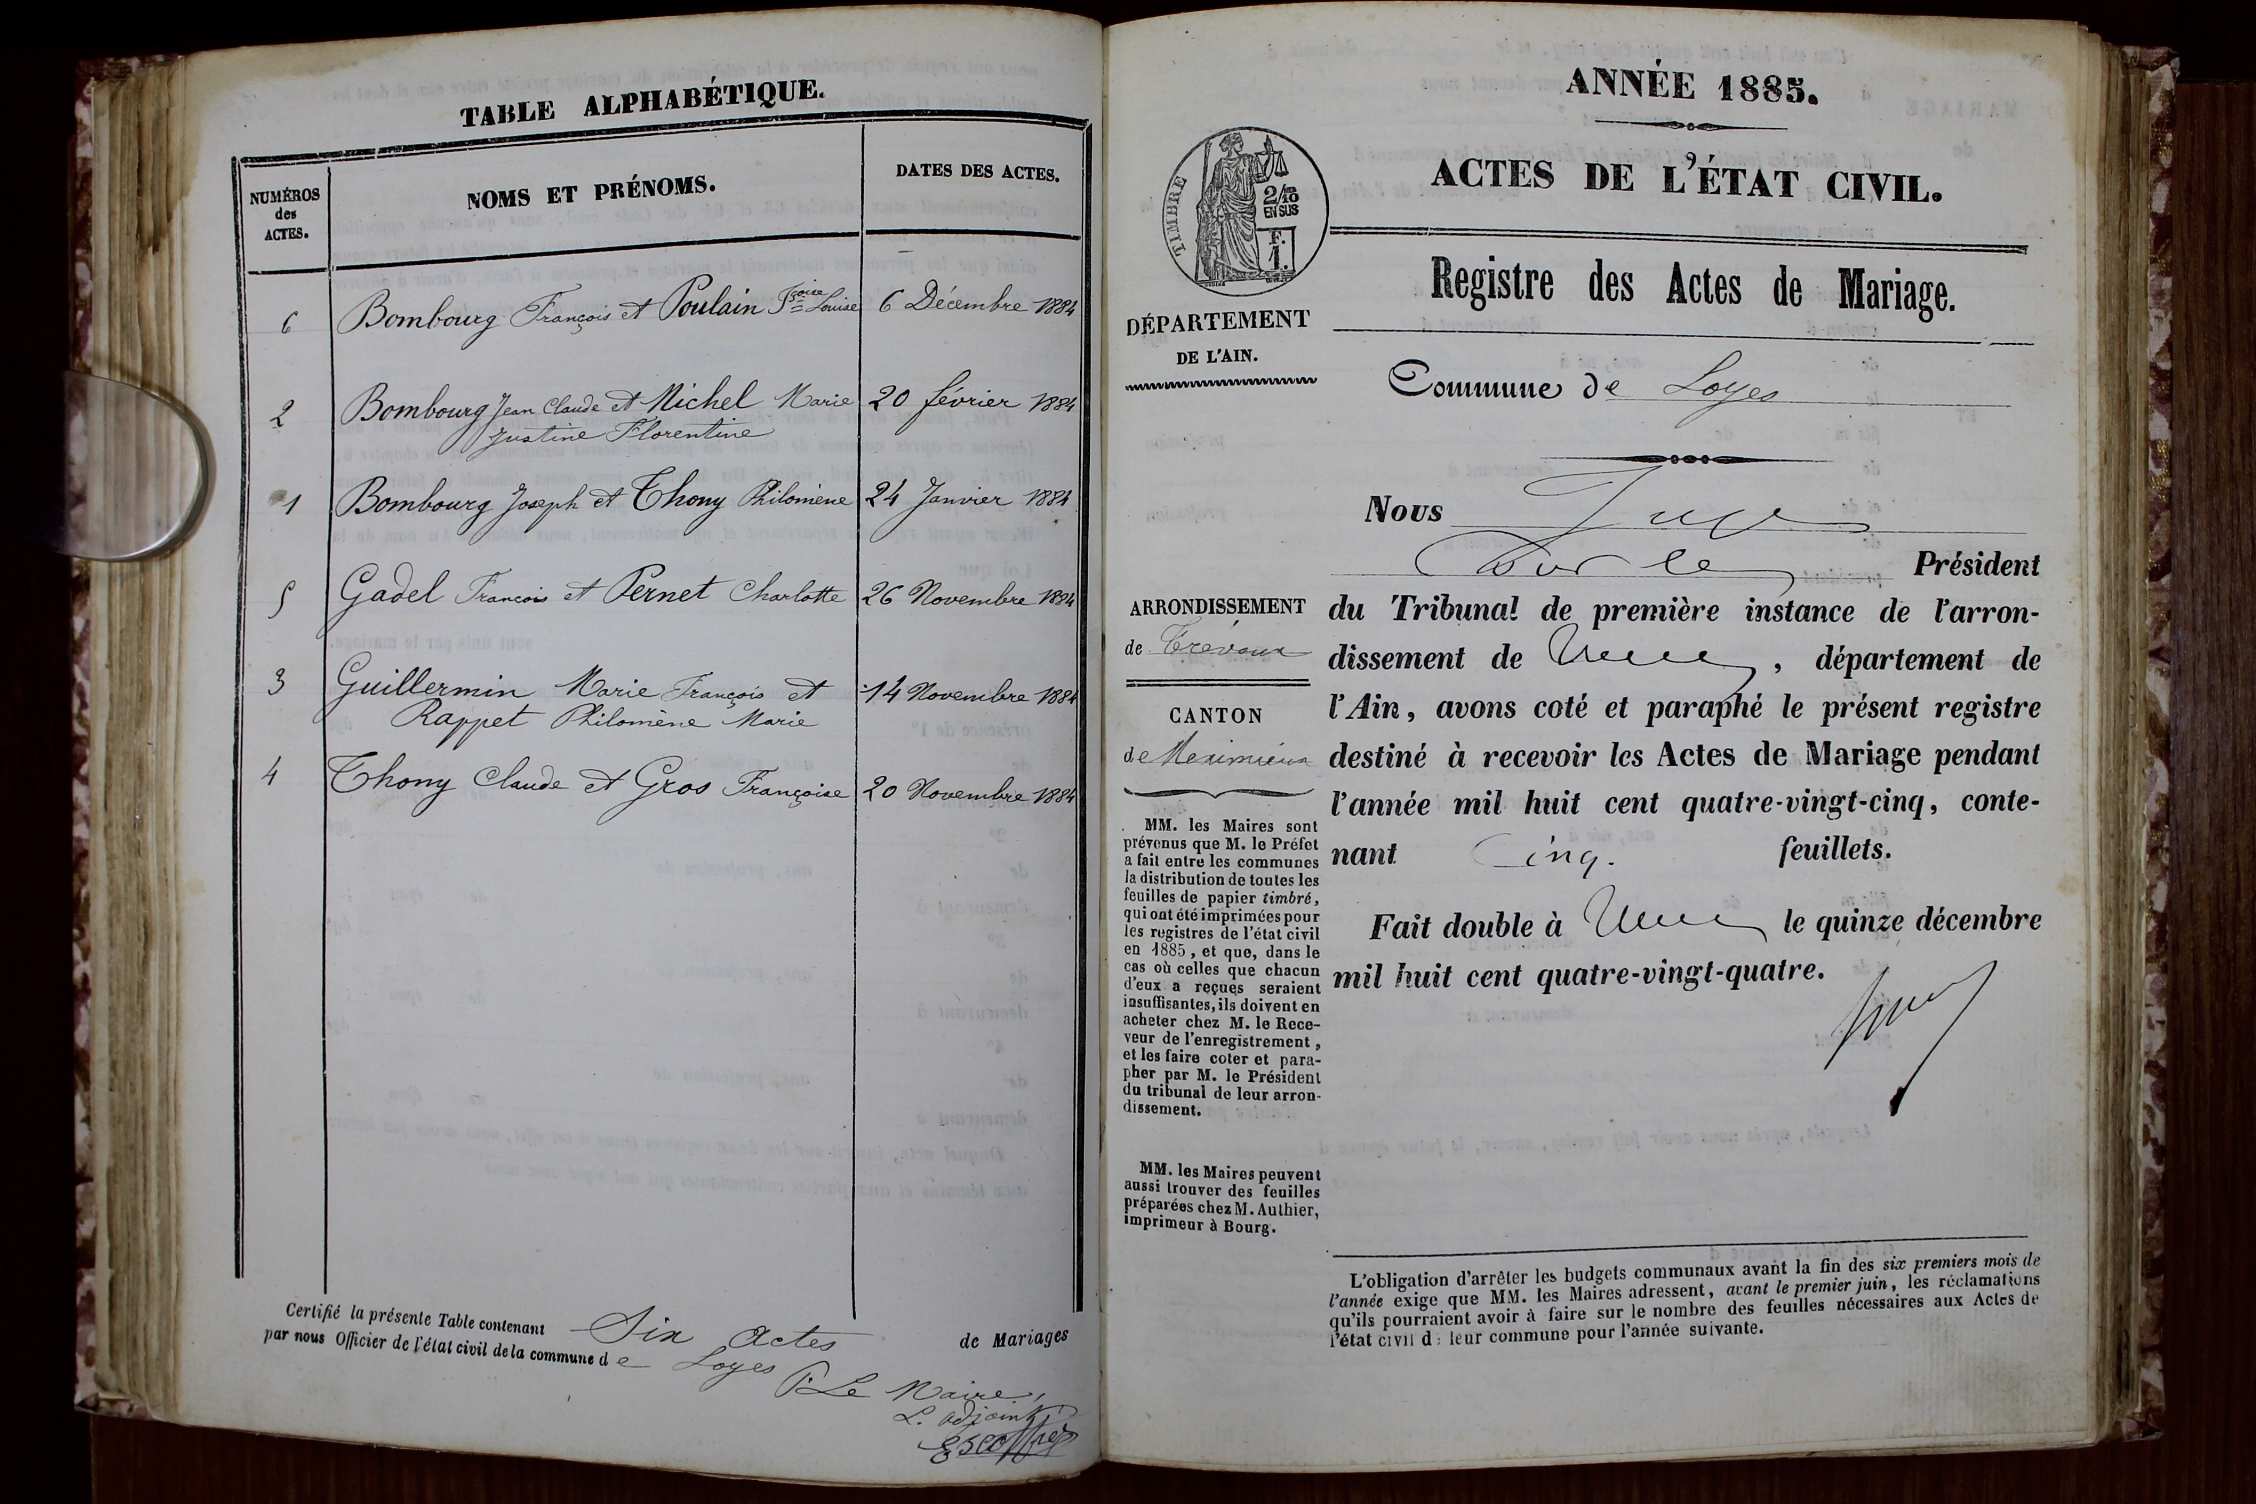 TABLE ALPHABÉTIQUE.
NUMÉROS
des
ACTES.
NOMS ET PRÉNOMS.
DATES DES ACTES.
6 Bombourg François et Poulain Fçoise Louise 6 Décembre 1884
2 Bombourg Jean Claude et Michel Marie 20 février 1884
Justine Florentine
1 Bombourg Joseph et Thony Philomène 24 Janvier 1884
5 Gadel François et Pernet Charlotte 26 Novembre 1884
3 Guillermin Marie François et 14 Novembre 1884
Rappet Philomène Marie
4 Thony Claude et Gros Françoise 20 Novembre 1884
Certifié la présente Table contenant Six Actes de Mariages
par nous Officier de l'état civil de la commune de Loyes
P. Le Maire,
L. adjoint
Escoffier
ANNÉE 1885.
TIMBRE
2/10
EN SUS
F.
1.
ACTES DE L'ÉTAT CIVIL.
Registre des Actes de Mariage.
DÉPARTEMENT
DE L'AIN.
Commune de Loyes
ARRONDISSEMENT
de Trévoux
CANTON
de Meximieux
MM. les Maires sont
prévenus que M. le Préfet
a fait entre les communes
la distribution de toutes les
feuilles de papier timbré,
qui ont été imprimées pour
les registres de l'état civil
en 1885, et que, dans le
cas où celles que chacun
d'eux a reçues seraient
insuffisantes, ils doivent en
acheter chez M. le Rece-
veur de l'enregistrement,
et les faire coter et para-
pher par M. le Président
du tribunal de leur arron-
dissement.
MM. les Maires peuvent
aussi trouver des feuilles
préparées chez M. Authier,
imprimeur à Bourg.
Nous Juge
Président
du Tribunal de première instance de l'arron-
dissement de , département de
l'Ain, avons coté et paraphé le présent registre
destiné à recevoir les Actes de Mariage pendant
l'année mil huit cent quatre-vingt-cinq, conte-
nant Cinq. feuillets.
Fait double à le quinze décembre
mil huit cent quatre-vingt-quatre.
L'obligation d'arrêter les budgets communaux avant la fin des six premiers mois de
l'année exige que MM. les Maires adressent, avant le premier juin, les réclamations
qu'ils pourraient avoir à faire sur le nombre des feuilles nécessaires aux Actes de
l'état civil d: leur commune pour l'année suivante.